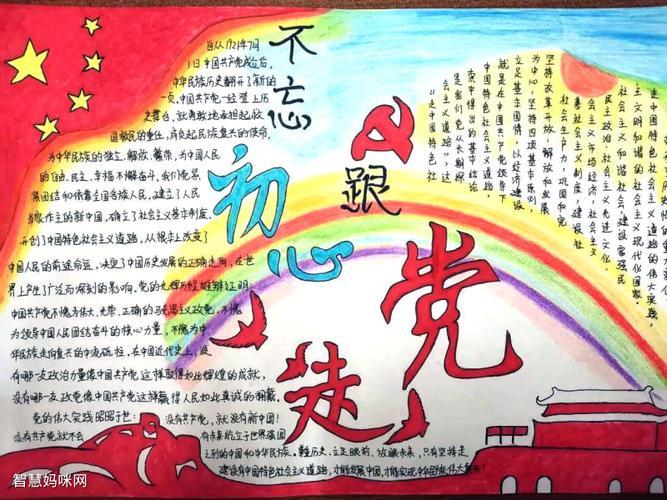 不忘
初心
跟
党
走
自从1921年7月
1日中国共产党成立后,
中华民族历史翻开了新的
一页,中国共产党一经登上历
史舞台,就勇敢地承担起救
国救民的重任,肩负起民族复兴的使命,
为中华民族的独立、解放、繁荣,为中国人民
的自由、民主、幸福不懈奋斗,我们党紧
紧团结和依靠全国各族人民,建立了人民
当家作主的新中国,确立了社会主义基本制度,
开创了中国特色社会主义道路,从根本上改变了
中国人民的前途命运,决定了中国历史发展的正确走向,在世
界上产生了广泛而深刻的影响,党的光辉历程雄辩证明:
中国共产党不愧为伟大、光荣、正确的马克思主义政党,不愧
为领导中国人民团结奋斗的核心力量,不愧为中
华民族走向复兴的中流砥柱,在中国近代史上,没
有哪一支政治力量像中国共产党这样取得如此辉煌的成就,
没有哪一支政党像中国共产党这样赢得人民如此真诚的拥戴,
党的伟大实践昭昭于世:没有共产党,就没有新中国!
没有共产党就不会有未来屹立于世界强国
之列的中国和中华民族。鞭历史、立足眼前、放眼未来,只有坚持走
建设有中国特色社会主义道路,才能发展中国,才能实现中华民族伟大复兴!
走中国特色社会主义
主文明和谐的社会主义现代化国家。
社会主义和谐社会,建设富强民
民主政治、社会主义先进文化、
会主义市场经济、社会主义
善社会主义制度,建设社
社会生产力,巩固和完
坚持改革开放,解放和发展
为中心,坚持四项基本原则
立足基本国情,以经济建设
就是在中国共产党领导下
中国特色社会主义道路,
索中得出的基本结论
是我们党从长期探
会主义道路",这
"走中国特色社
智慧妈咪网